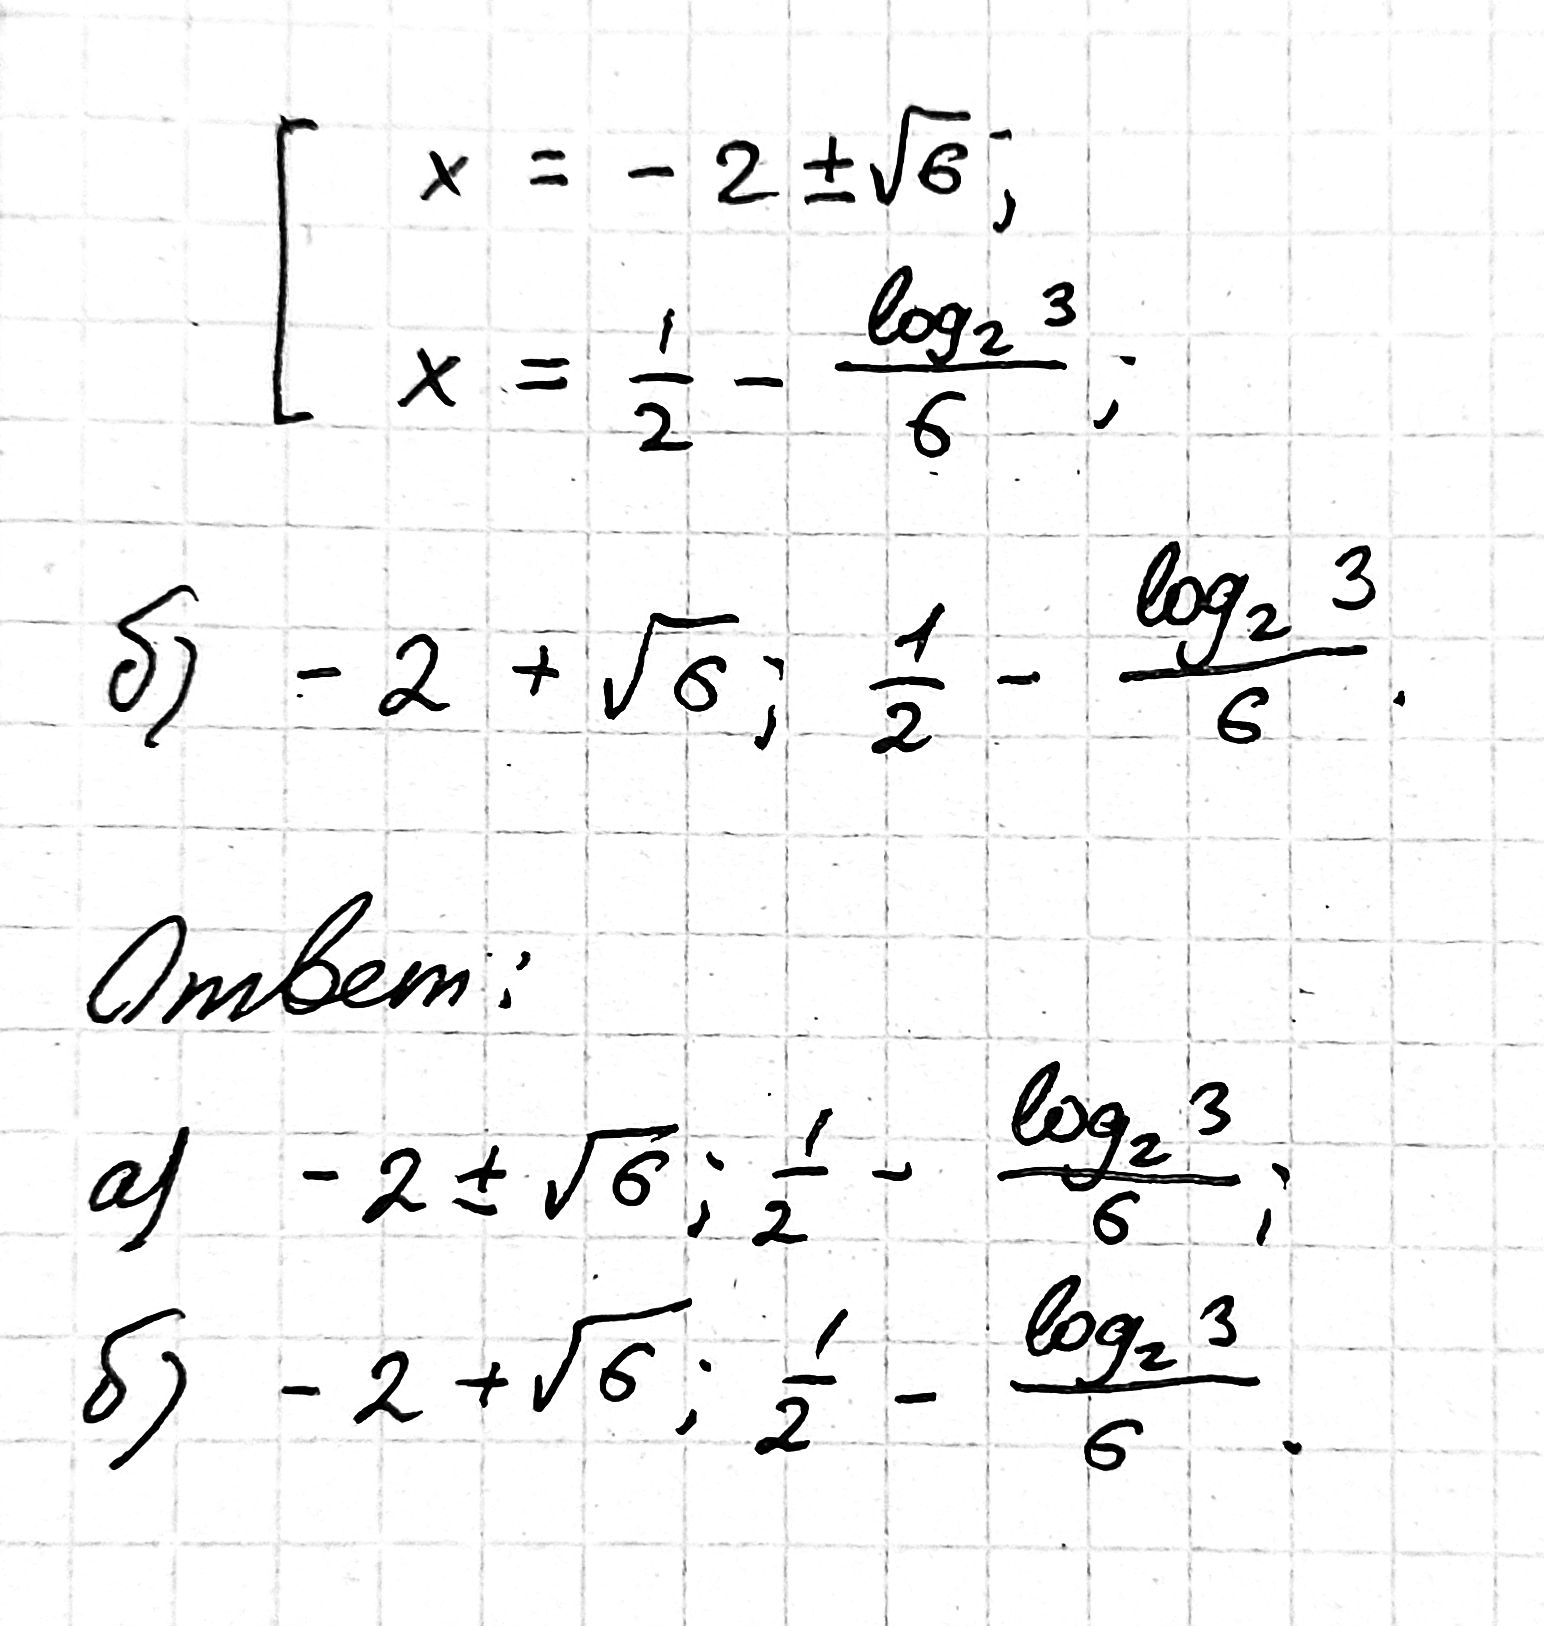 [ x = - 2 ± √6 ;
x = 1/2 - log₂ 3 / 6 ;
б) - 2 + √6 ; 1/2 - log₂ 3 / 6 .
Ответ:
а) - 2 ± √6 ; 1/2 - log₂ 3 / 6 ;
б) - 2 + √6 ; 1/2 - log₂ 3 / 6 .